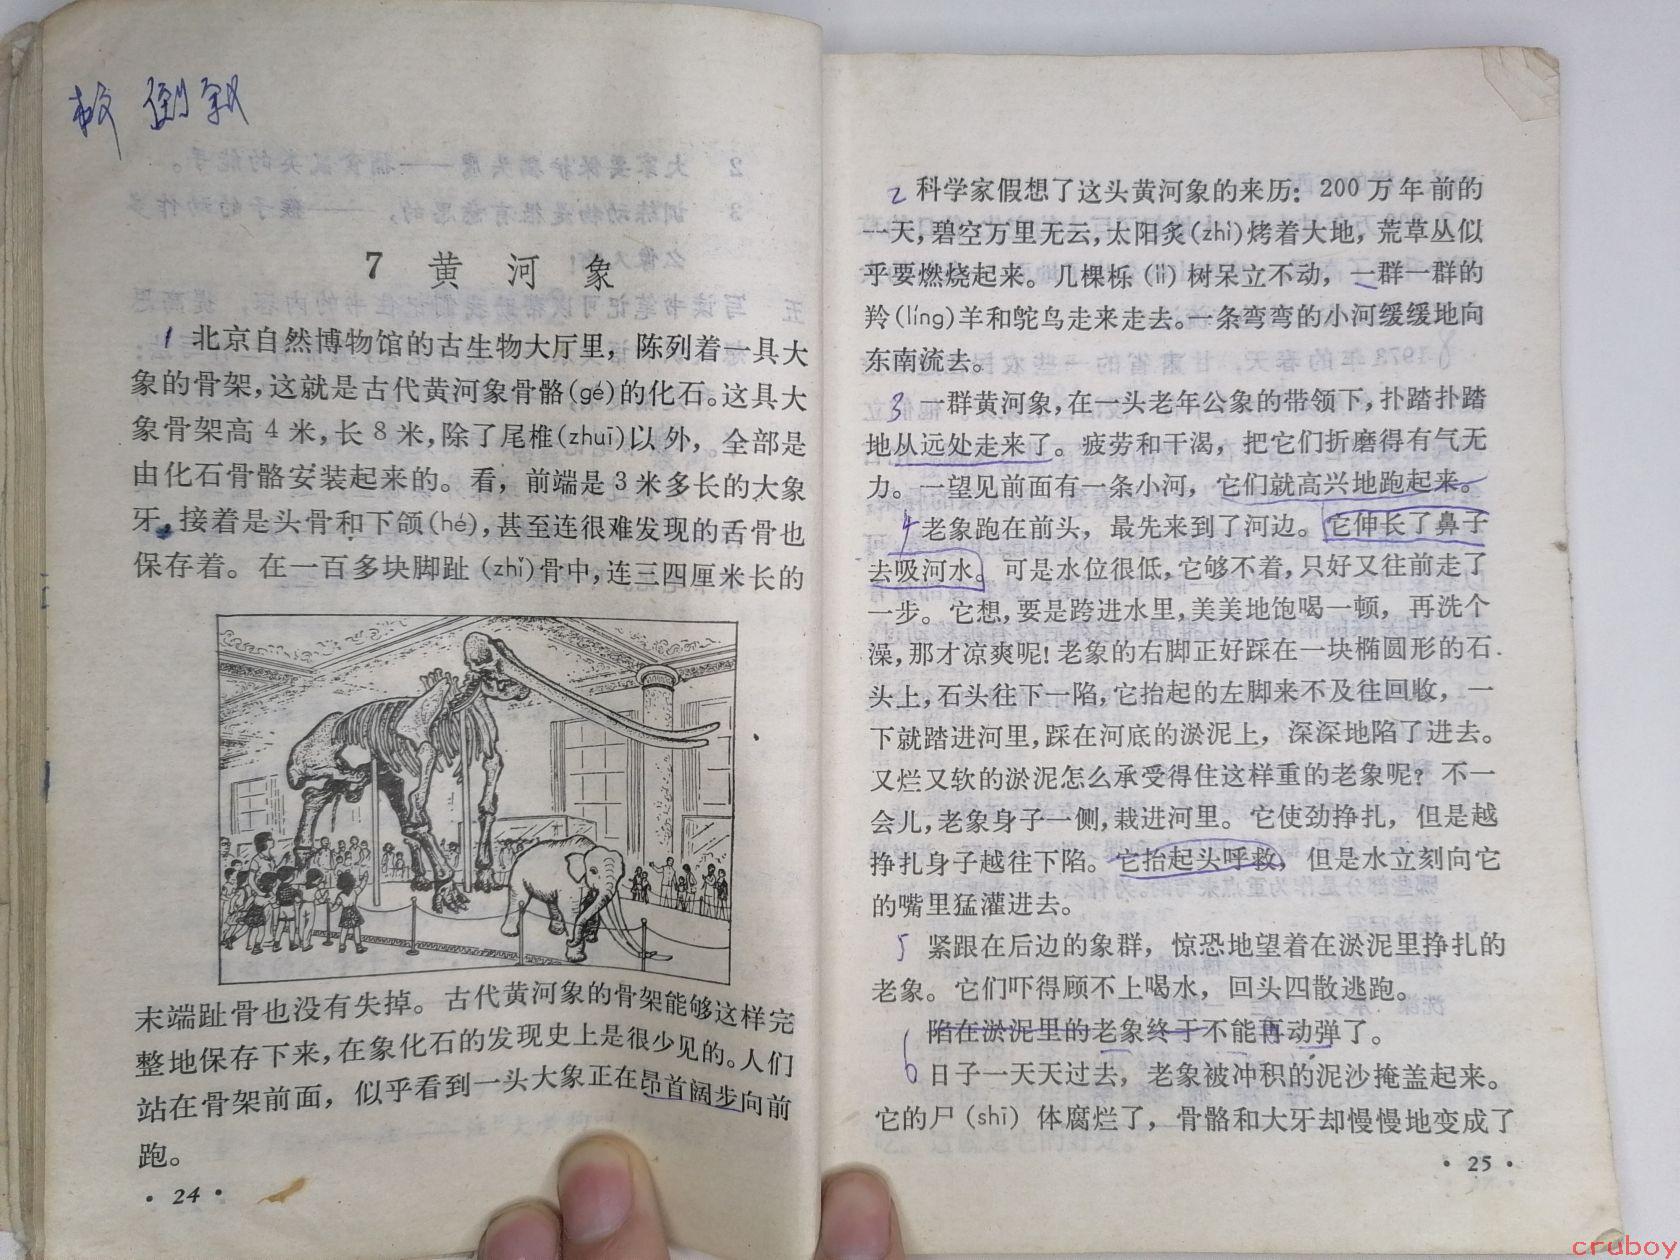 倒叙
7 黄河象
1 北京自然博物馆的古生物大厅里，陈列着一具大
象的骨架，这就是古代黄河象骨骼(gé)的化石。这具大
象骨架高4米，长8米，除了尾椎(zhuī)以外，全部是
由化石骨骼安装起来的。看，前端是3米多长的大象
牙，接着是头骨和下颌(hé)，甚至连很难发现的舌骨也
保存着。在一百多块脚趾(zhǐ)骨中，连三四厘米长的
末端趾骨也没有失掉。古代黄河象的骨架能够这样完
整地保存下来，在象化石的发现史上是很少见的。人们
站在骨架前面，似乎看到一头大象正在昂首阔步向前
跑。
· 24 ·
2 科学家假想了这头黄河象的来历：200万年前的
一天，碧空万里无云，太阳炙(zhì)烤着大地，荒草丛似
乎要燃烧起来。几棵栎(lì)树呆立不动，一群一群的
羚(líng)羊和鸵鸟走来走去。一条弯弯的小河缓缓地向
东南流去。
3 一群黄河象，在一头老年公象的带领下，扑踏扑踏
地从远处走来了。疲劳和干渴，把它们折磨得有气无
力。一望见前面有一条小河，它们就高兴地跑起来。
4 老象跑在前头，最先来到了河边。它伸长了鼻子
去吸河水。可是水位很低，它够不着，只好又往前走了
一步。它想，要是跨进水里，美美地饱喝一顿，再洗个
澡，那才凉爽呢！老象的右脚正好踩在一块椭圆形的石
头上，石头往下一陷，它抬起的左脚来不及往回收，一
下就踏进河里，踩在河底的淤泥上，深深地陷了进去。
又烂又软的淤泥怎么承受得住这样重的老象呢？不一
会儿，老象身子一侧，栽进河里。它使劲挣扎，但是越
挣扎身子越往下陷。它抬起头呼救，但是水立刻向它
的嘴里猛灌进去。
5 紧跟在后边的象群，惊恐地望着在淤泥里挣扎的
老象。它们吓得顾不上喝水，回头四散逃跑。
陷在淤泥里的老象终于不能再动弹了。
6 日子一天天过去，老象被冲积的泥沙掩盖起来。
它的尸(shī)体腐烂了，骨骼和大牙却慢慢地变成了
· 25 ·
cruboy